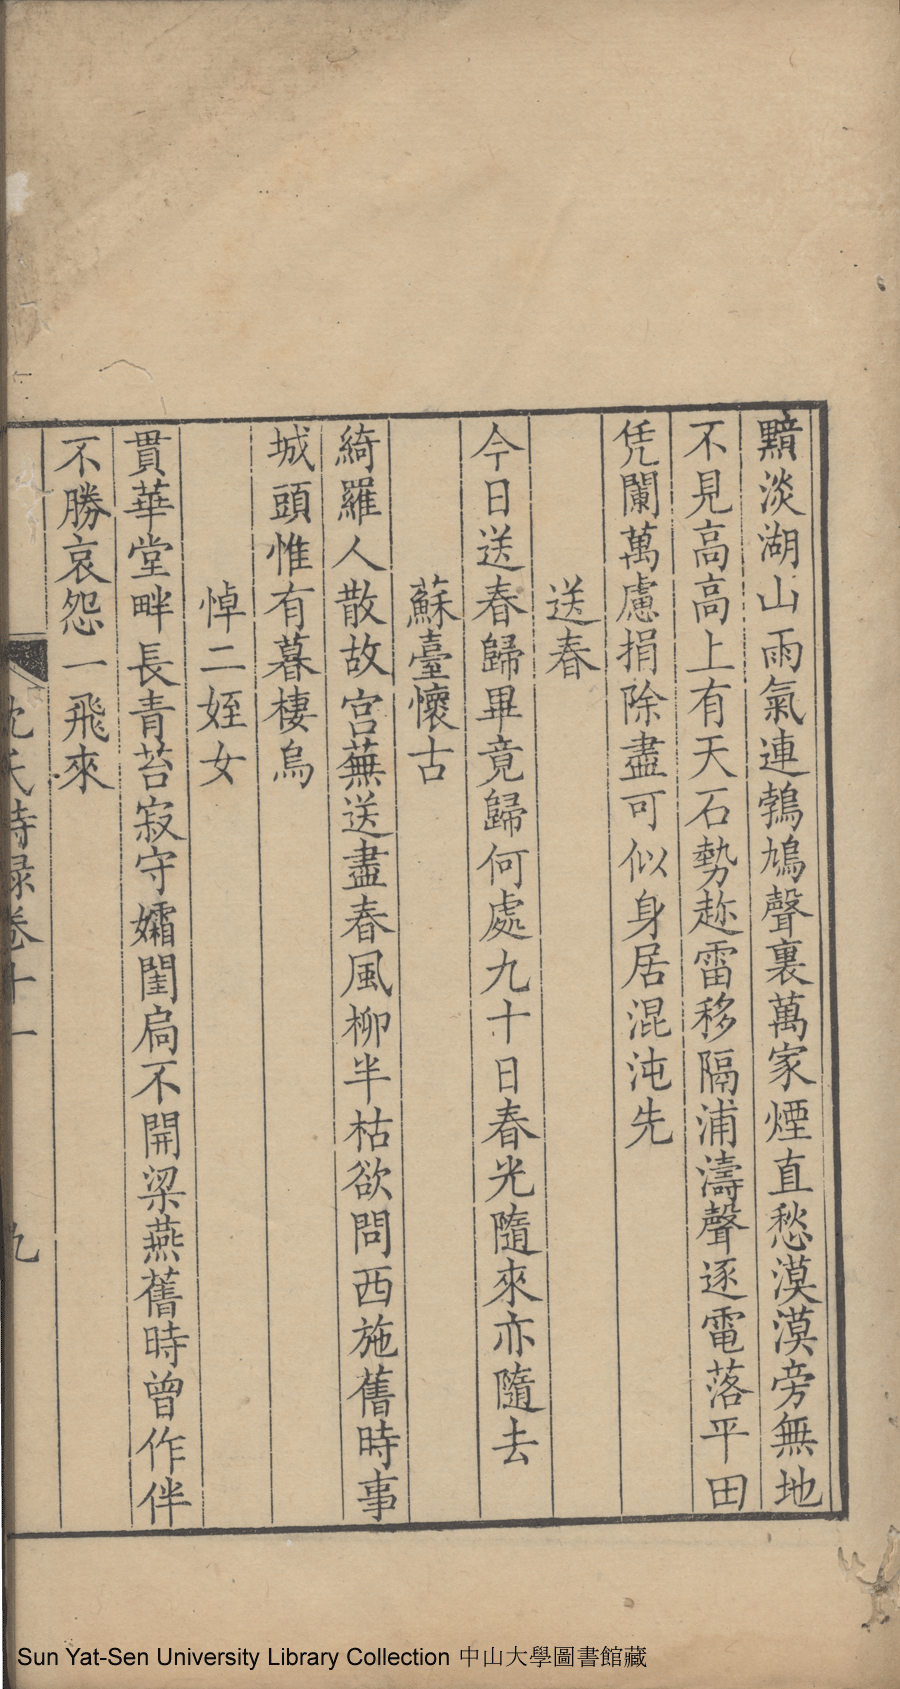 黯淡湖山雨氣連鵓鳩聲裏萬家煙直愁漠漠旁無地
不見高高上有天石勢趂雷移隔浦濤聲逐電落平田
凭闌萬慮捐除盡可似身居混沌先
送春
今日送春歸畢竟歸何處九十日春光隨來亦隨去
蘇臺懷古
綺羅人散故宮蕪送盡春風柳半枯欲問西施舊時事
城頭惟有暮棲烏
悼二姪女
貫華堂畔長青苔寂守孀閨扃不開梁燕舊時曾作伴
不勝哀怨一飛來
沈氏詩録卷十一 九
Sun Yat-Sen University Library Collection 中山大學圖書館藏